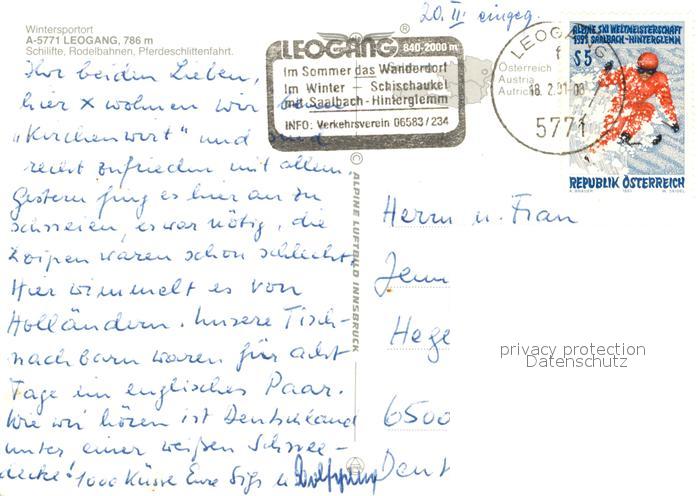 20. II. eingeg.
Wintersportort
A-5771 LEOGANG, 786 m
Schilifte, Rodelbahnen, Pferdeschlittenfahrt.
LEOGANG® 840-2000 m
Im Sommer das Wanderdorf
Im Winter - Schischaukel
mit Saalbach-Hinterglemm
INFO: Verkehrsverein 06583/234
Österreich
Austria
Autriche
18. 2. 91-08
5771
ALPINE SKI WELTMEISTERSCHAFT
1991 SAALBACH-HINTERGLEMM
S 5
REPUBLIK ÖSTERREICH
Ihr beiden Lieben,
hier x wohnen wir beim
"Kirchenwirt" und sind
recht zufrieden mit allem.
Gestern fing es hier an zu
schneien, es war nötig, die
Loipen waren schon schlecht.
Hier wimmelt es von
Holländern. Unsere Tisch-
nachbarn waren für acht
Tage ein englisches Paar.
Wie wir hören ist Deutschland
unter einer weißen Schnee-
decke! 1000 Küsse Eure Sigs u. Wolfgang
ALPINE LUFTBILD INNSBRUCK
Herrn u. Frau
Hege
6500
Deut
privacy protection
Datenschutz